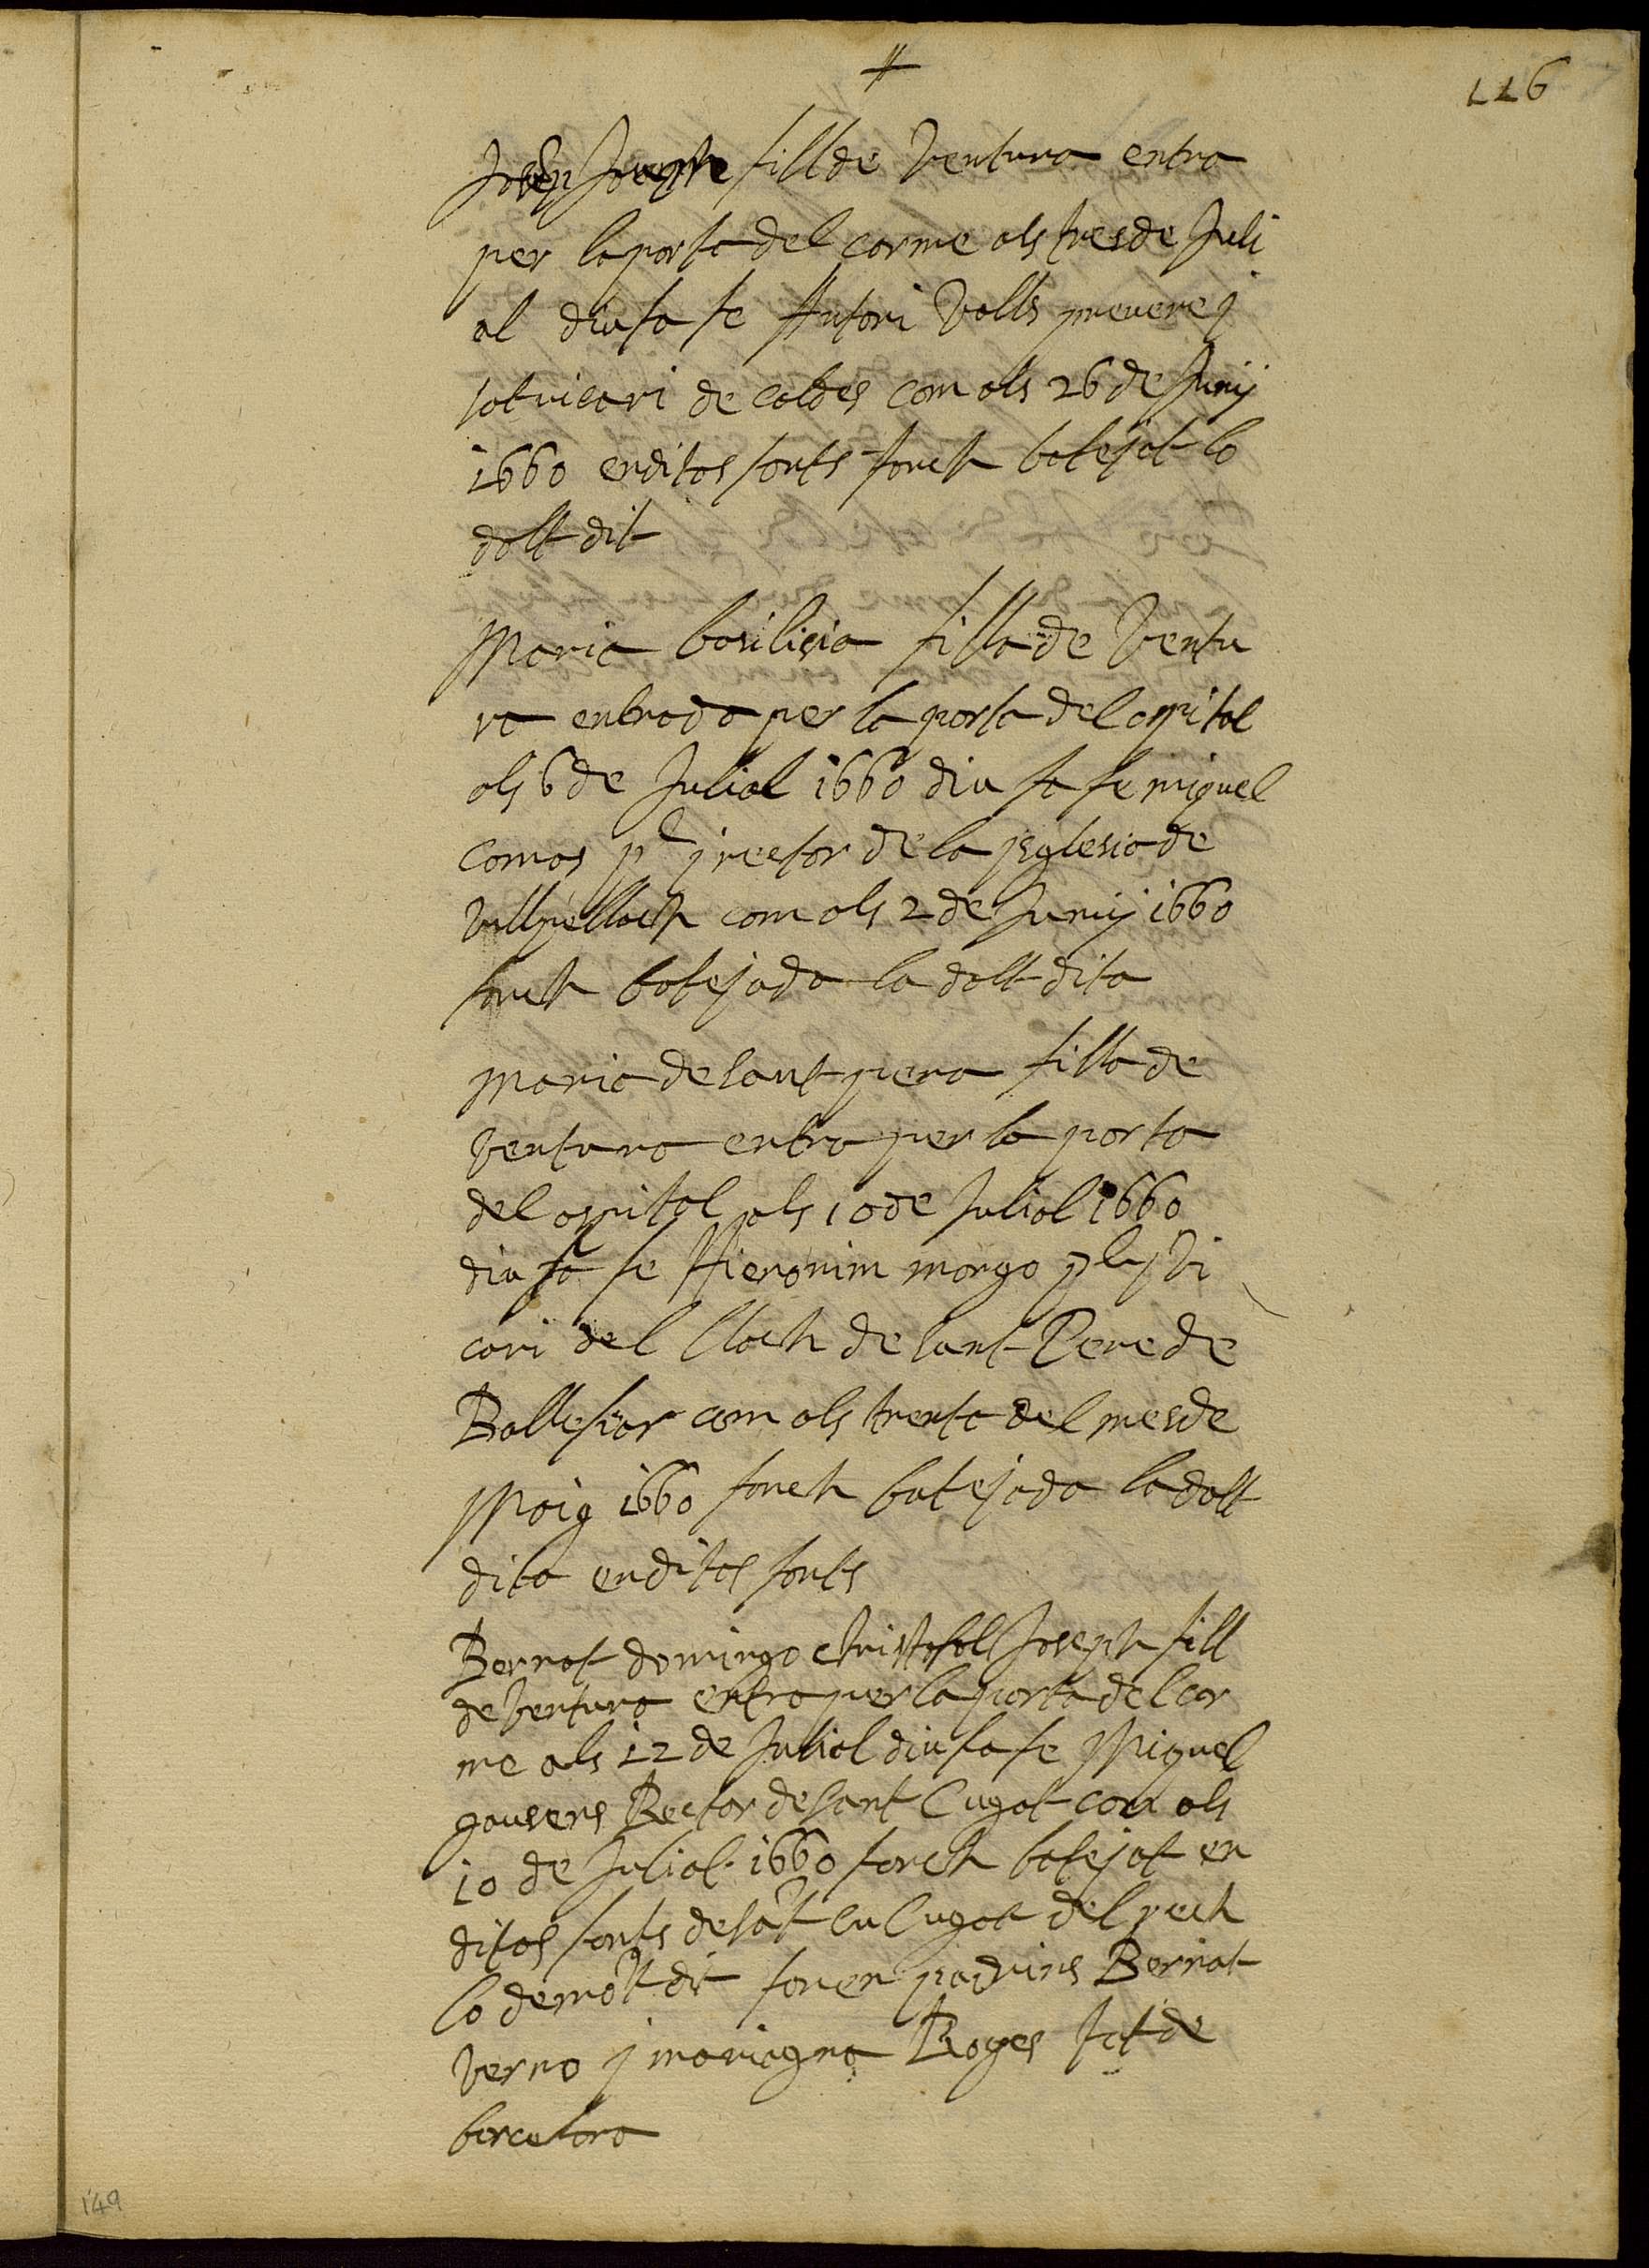 116
Josep Joseph fill de Ventura entra
per la porta del carme als tres de Juli
ol diu fa fe Antoni Valls prevere j
sotvicari de caldes com als 26 de Junij
1660 en ditas fonts fonch batejat lo
dalt dit
Maria basilisia filla de Ventu
ra entrada per la porta del ospital
als 6 de Juliol 1660 diu fa fe miquel
comas pre j rector de la jsglesia de
Vullpellach com als 2 de Junij 1660
fonch batejada la dalt dita
Maria de sant pera filla de
Ventura entra per la porta
del ospital als 10 de Juliol 1660
diu fa fe Hieronim
cari del lloch de sant Pere de
com als trenta del mes de
Maig 1660 fonch batejada la dalt
dita en ditas fonts
Bernat domingo christofol Joseph fill
de Ventura entra per la porta del car
me als 12 de Juliol diu fa fe Miquel
gausens Rector de sant Cugat com als
10 de Juliol 1660 fonch batejat en
ditas fonts de sât Cugat del rech
lo demôt dit foren padrins Bernat
Verno j mariagna Roges tot de
barcelona
149